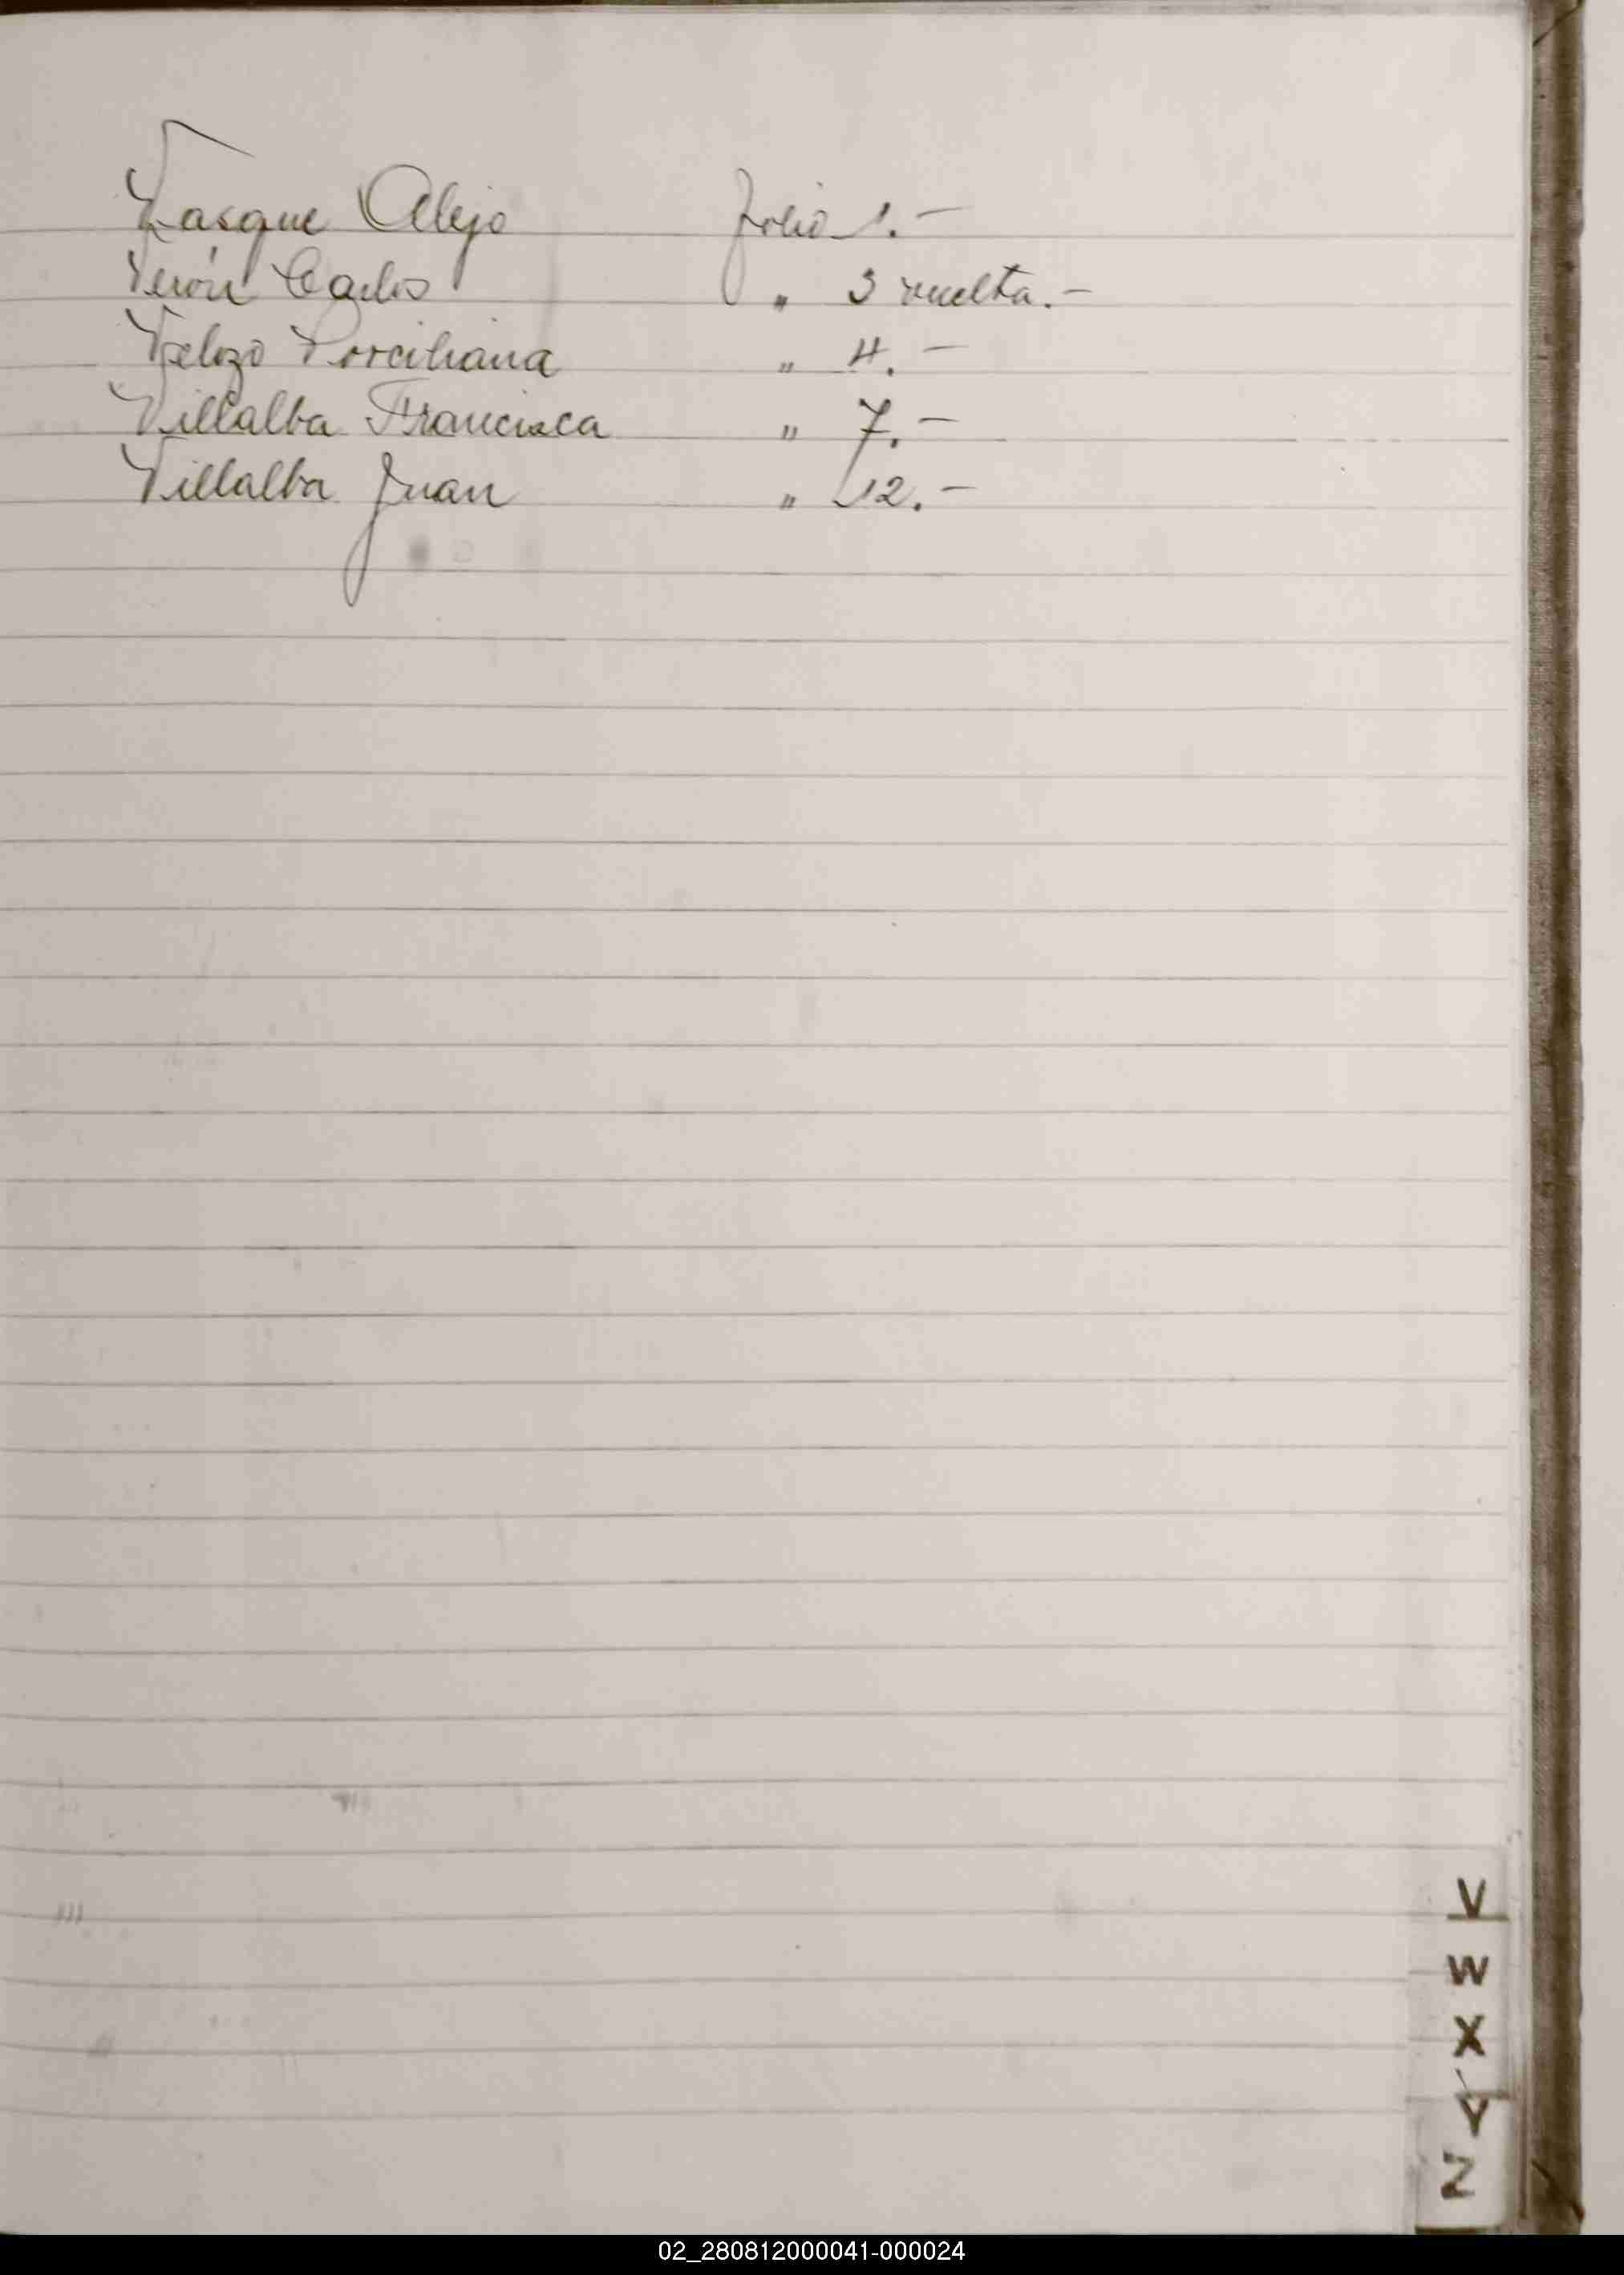 Vasque Alejo folio 1.—
Verón Carlos " 3 vuelta.—
Velozo Porciliana " 4.—
Villalba Francisca " 7.—
Villalba Juan " 12.—
V
W
X
Y
Z
02_280812000041-000024